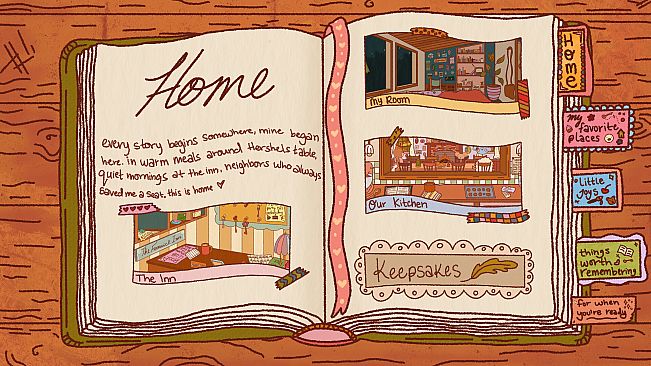 Home
every story begins somewhere, mine began
here. in warm meals around Hershels table,
quiet mornings at the inn, neighbors who always
saved me a seat. this is home
The Inn
My Room
Our Kitchen
Keepsakes
Home
my
favorite
places
Little
Joys
things
worth
remembering
for when
you're ready